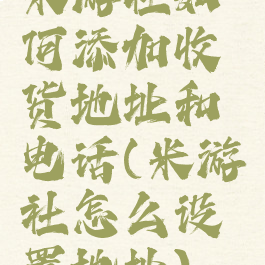 米游社如
何添加收
货地址和
电话(米游
社怎么设
置地址)